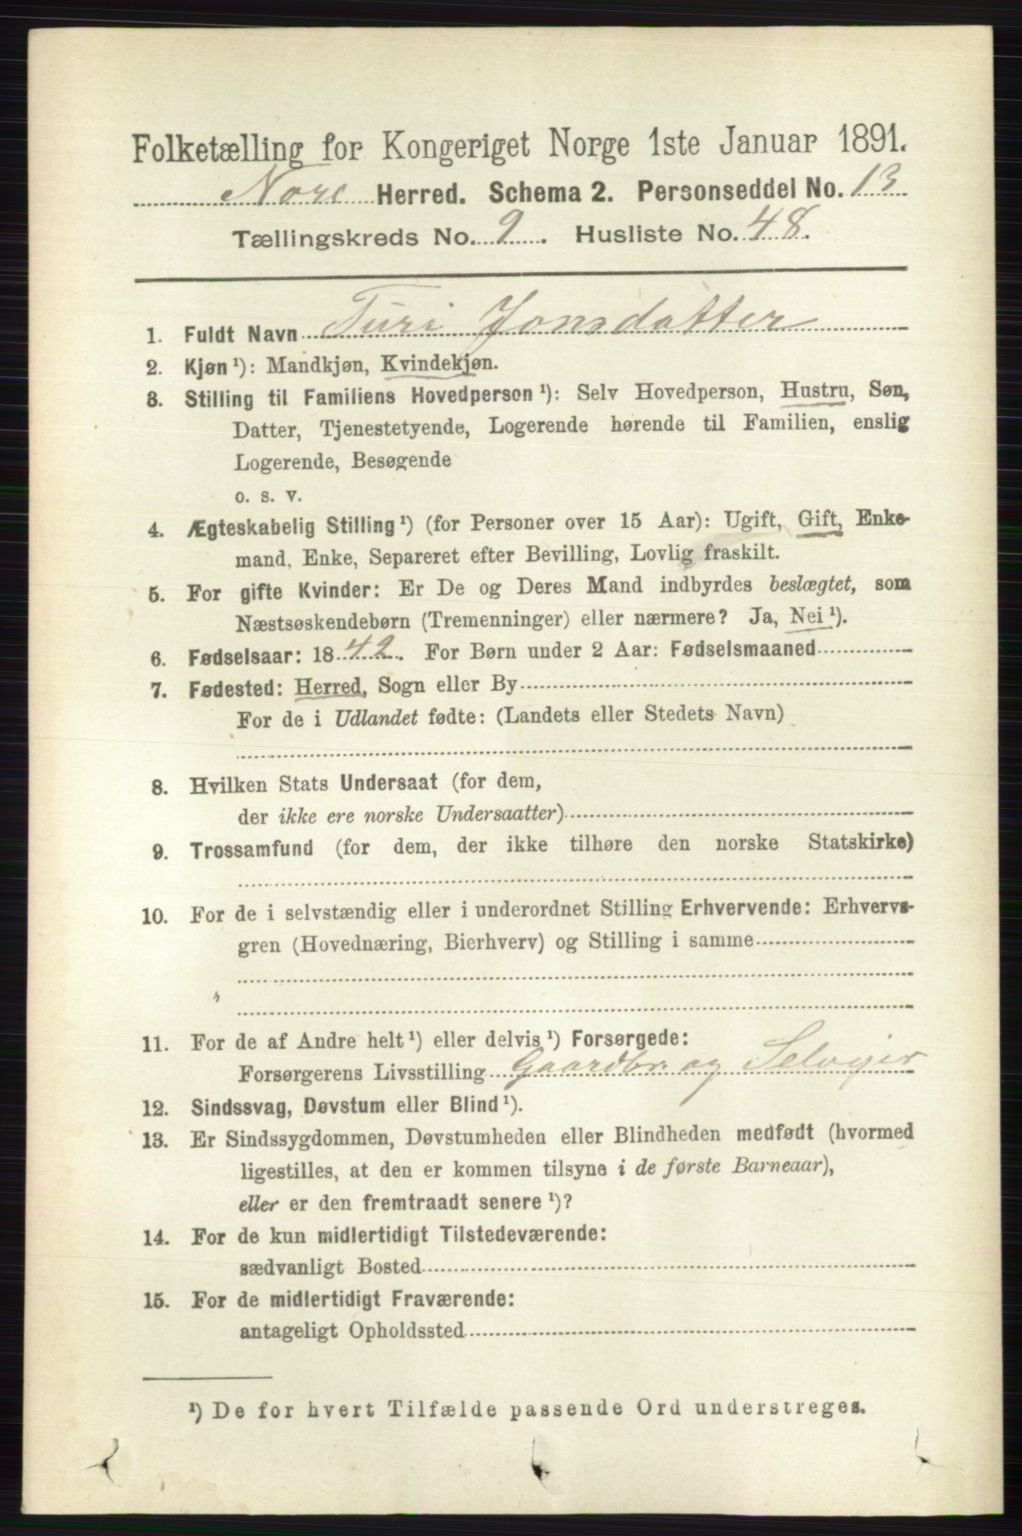 Folketælling for Kongeriget Norge 1ste Januar 1891.
Nore Herred. Schema 2. Personseddel No. 13
Tællingskreds No. 9. Husliste No. 48.
1. Fuldt Navn Turi Jonsdatter
2. Kjøn ¹): Mandkjøn, Kvindekjøn.
3. Stilling til Familiens Hovedperson ¹): Selv Hovedperson, Hustru, Søn,
Datter, Tjenestetyende, Logerende hørende til Familien, enslig
Logerende, Besøgende
o. s. v.
4. Ægteskabelig Stilling ¹) (for Personer over 15 Aar): Ugift, Gift, Enke-
mand, Enke, Separeret efter Bevilling, Lovlig fraskilt.
5. For gifte Kvinder: Er De og Deres Mand indbyrdes beslægtet, som
Næstsøskendebørn (Tremenninger) eller nærmere? Ja, Nei ¹).
6. Fødselsaar: 1842. For Børn under 2 Aar: Fødselsmaaned
7. Fødested: Herred, Sogn eller By
For de i Udlandet fødte: (Landets eller Stedets Navn)
8. Hvilken Stats Undersaat (for dem,
der ikke ere norske Undersaatter)
9. Trossamfund (for dem, der ikke tilhøre den norske Statskirke)
10. For de i selvstændig eller i underordnet Stilling Erhvervende: Erhvervs-
gren (Hovednæring, Bierhverv) og Stilling i samme
11. For de af Andre helt ¹) eller delvis ¹) Forsørgede:
Forsørgerens Livsstilling Gaardbr. og Selveier
12. Sindssvag, Døvstum eller Blind ¹).
13. Er Sindssygdommen, Døvstumheden eller Blindheden medfødt (hvormed
ligestilles, at den er kommen tilsyne i de første Barneaar),
eller er den fremtraadt senere ¹)?
14. For de kun midlertidigt Tilstedeværende:
sædvanligt Bosted
15. For de midlertidigt Fraværende:
antageligt Opholdssted
¹) De for hvert Tilfælde passende Ord understreges.